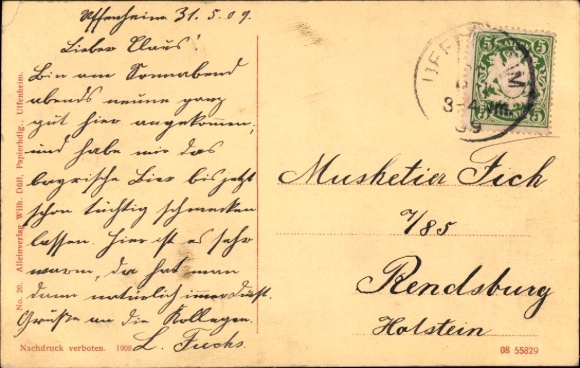 Uffenheim, 31.5.09.
Lieber Claus!
Bin am Sonnabend
abends neune ganz
gut hier angekommen,
und habe mir das
bayrische Bier bis jetzt
schon tüchtig schmecken
lassen. Hier ist es sehr
warm, da hat man
dann natürlich immer Durst.
Grüße an die Kollegen
L. Fuchs.
No. 20. Alleinverlag Wilh. Düll, Papierhdlg., Uffenheim.
Nachdruck verboten. 1908
UFFENHEIM
3-4 Nm.
09
5 5
Musketier Fich
7/85
Rendsburg
Holstein
08 55829